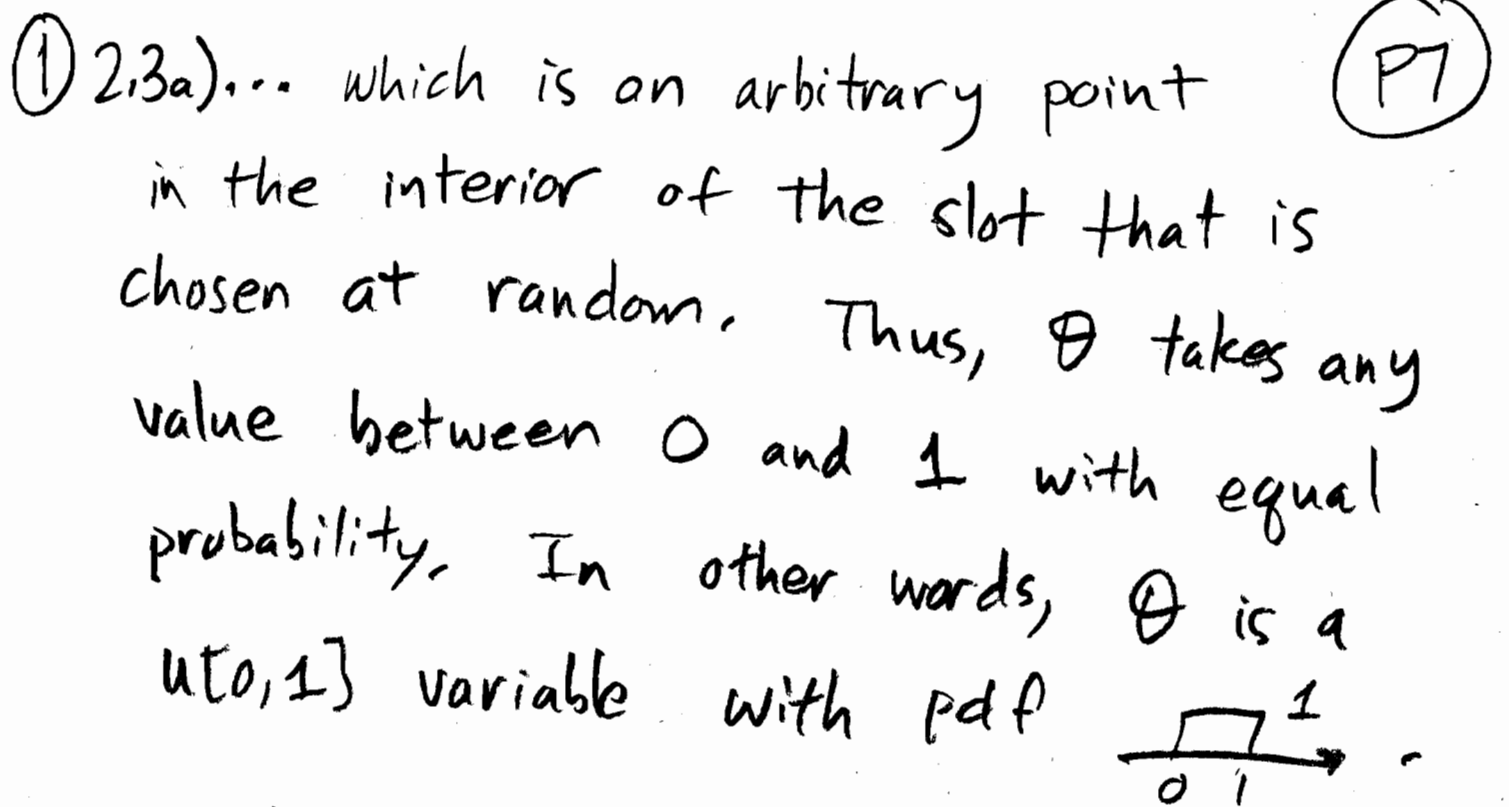 ① 2.3a)... which is an arbitrary point P7
in the interior of the slot that is
chosen at random. Thus, θ takes any
value between 0 and 1 with equal
probability. In other words, θ is a
u[0,1] variable with pdf 1
0 1